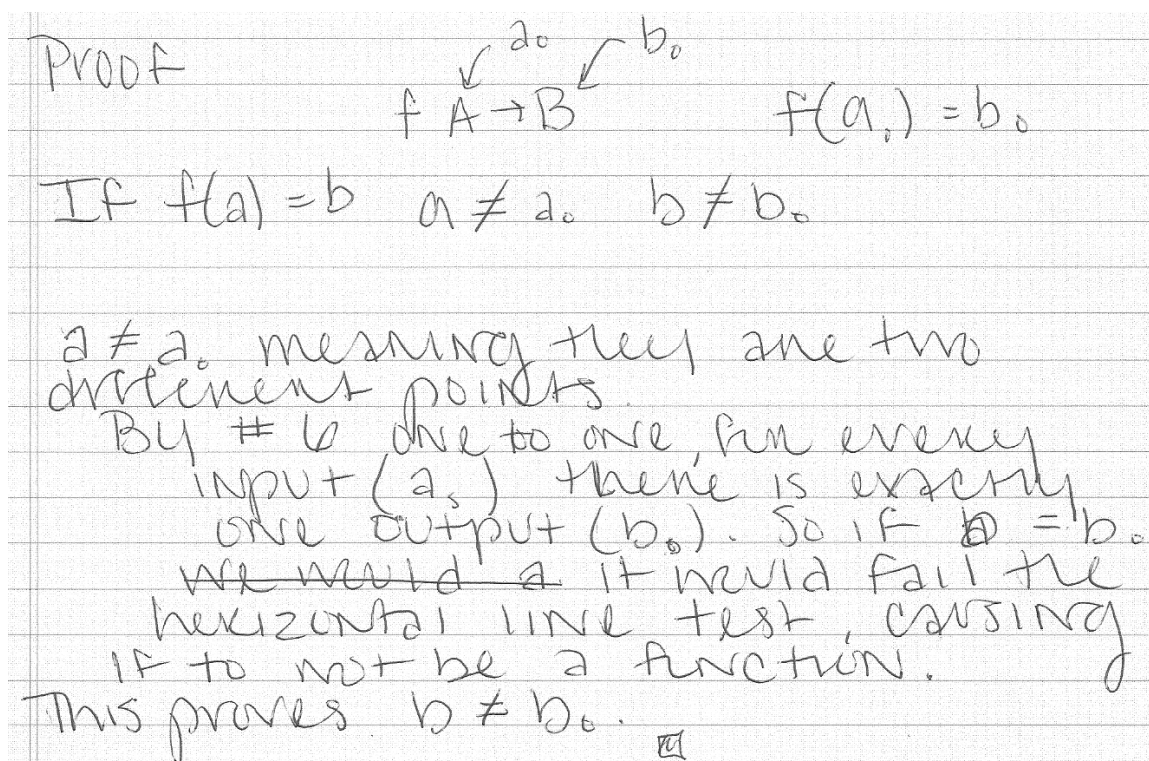 Proof
a₀ b₀
f A → B f(a₀) = b₀
If f(a) = b a ≠ a₀ b ≠ b₀
a ≠ a₀ meaning they are two
different points.
By # 6 one to one, for every
input (a₀) there is exactly
one output (b₀). So if b = b₀
we would a it would fail the
horizontal line test, causing
it to not be a function.
This proves b ≠ b₀.